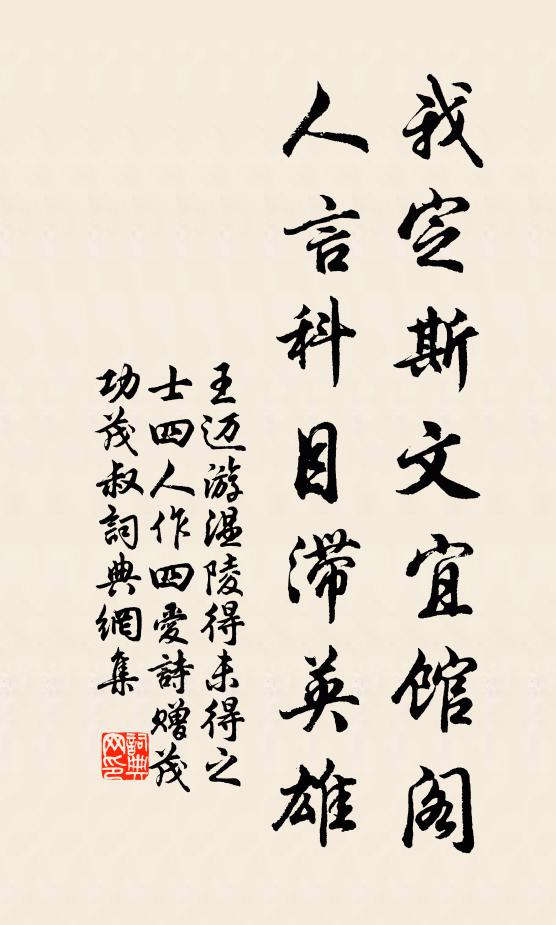 我定斯文宜馆阁
人言科目滞英雄
王迈游温陵得未得之
士四人作四爱詩赠茂
功茂叔詞典網集
詞典
网印